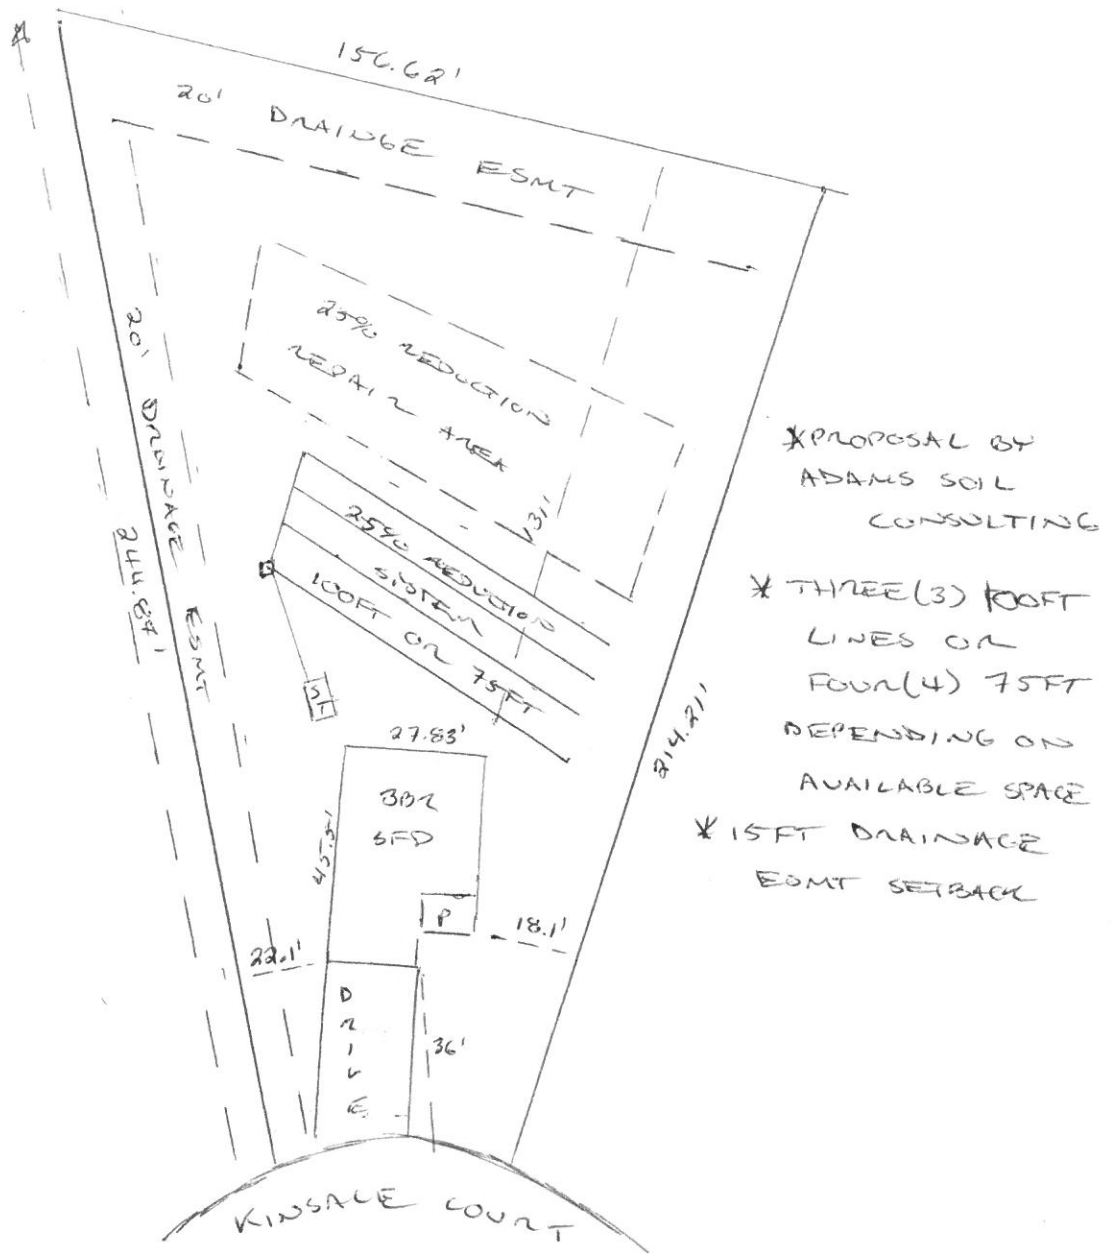 156.62'
20' DRAINGE ESMT
20' DRAINAGE ESMT
244.87'
25% REDUCTION
REPAIR AREA
131'
25% REDUCTION
SYSTEM
100FT OR 75FT
ST
214.21'
27.83'
3BR
SFD
45.5'
P
18.1'
22.1'
DRIVE
36'
KINSALE COURT
*PROPOSAL BY
ADAMS SOIL
CONSULTING
* THREE(3) 100FT
LINES OR
FOUR(4) 75FT
DEPENDING ON
AVAILABLE SPACE
* 15FT DRAINAGE
ESMT SETBACK